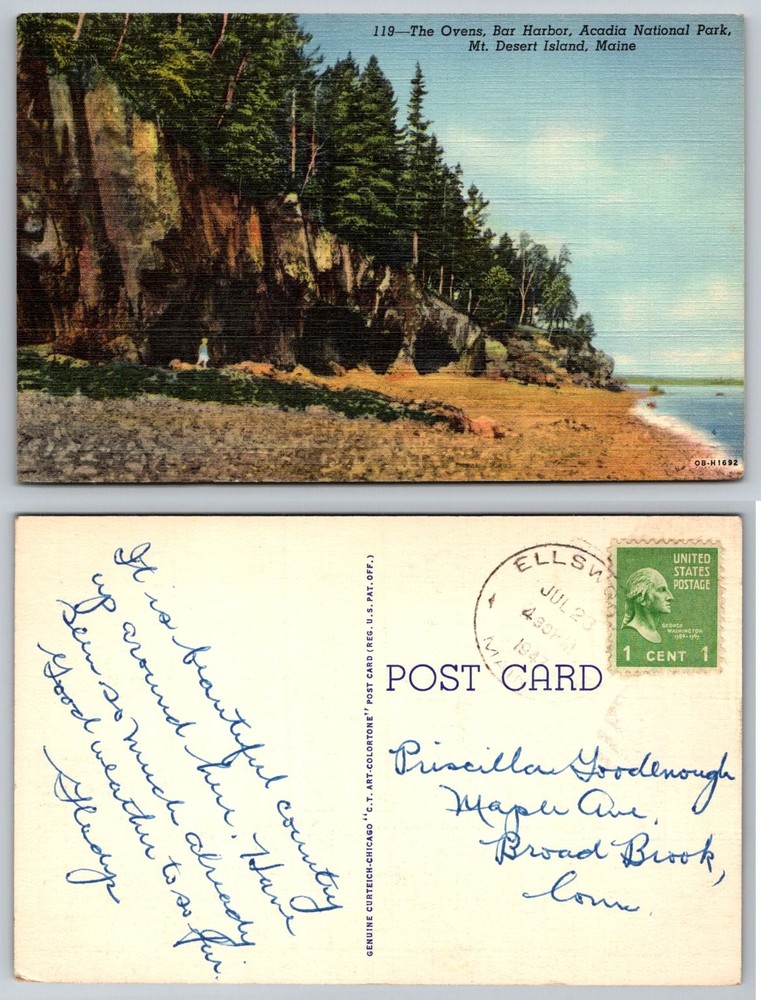 119—The Ovens, Bar Harbor, Acadia National Park,
Mt. Desert Island, Maine
OB-H1692
It is beautiful country
up around here. Have
Seen so much already
Good weather to so far.
Gladys
GENUINE CURTEICH-CHICAGO "C.T. ART-COLORTONE" POST CARD (REG. U.S. PAT. OFF.)
ELLSWO
JUL 23
4 30 PM
194
MAINE
UNITED
STATES
POSTAGE
GEORGE
WASHINGTON
1789-1797
1 CENT 1
POST CARD
Priscilla Goodenough
Maple Ave.
Broad Brook,
Conn.